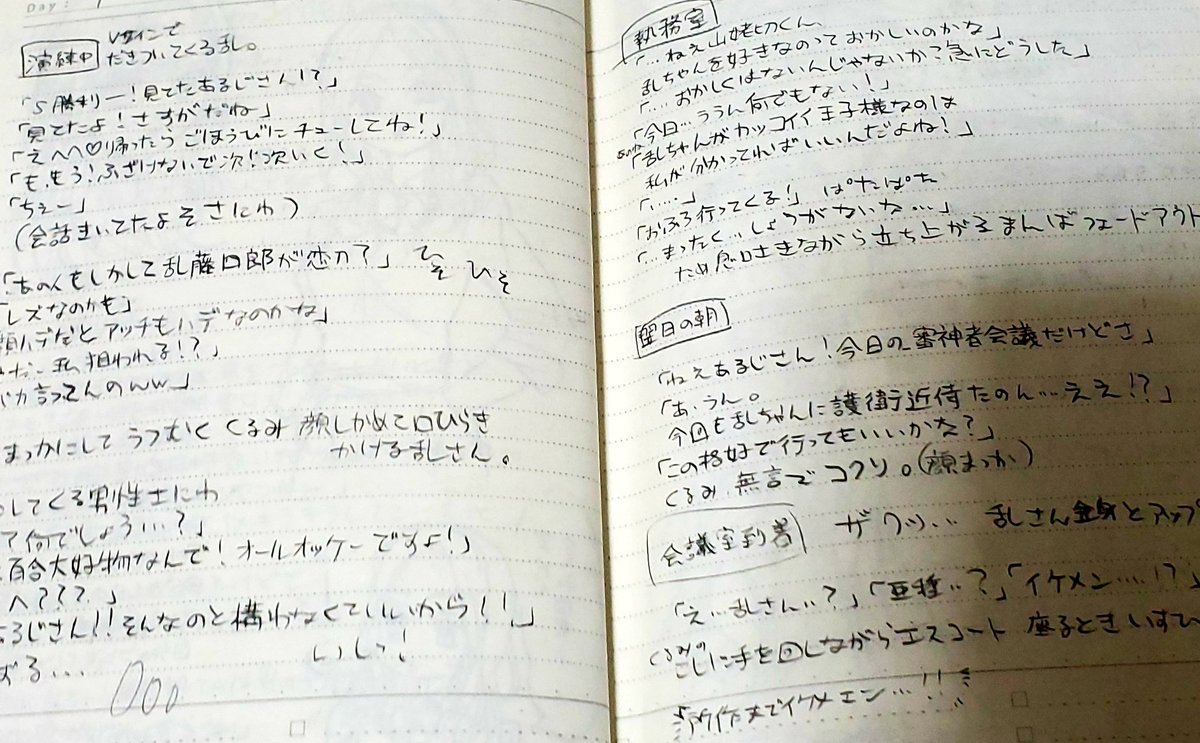 Day:
Vサインで
演練中 だきついてくる乱。
「S勝利ー!見てたあるじさん!?」
「見てたよ!さすがだね」
「えへへ♡帰ったらごほうびにチューしてね!」
「も、もう!ふざけないで次!次いく!」
「ちぇー」
(会話きいてたよそさにわ)
「あの人もしかして乱藤四郎が恋刀?」 ひそひそ
「レズなのかも」
顔ハデだとアッチもハデなのかな」
私狙われる!?」
バカ言ってんのww」
まっかにしてうつむくくるみ 顔しかめて口ひらき
かける乱さん。
してくる男性さにわ
何でしょう…?」
百合大好物なんで!オールオッケーですよ!」
へ???」
あるじさん!!そんなのと構わなくていいから!!」
ずる… いしっ!
執務室
「…ねえ山姥切くん、
乱ちゃんを好きなのっておかしいのかな」
「…おかしくはないんじゃないか?急にどうした」
「今日…ううん何でもない!」
「乱ちゃんがカッコイイ王子様なのは
私が分かってればいいんだよね!」
「……」
「おふろ行ってくる!」 ぱたぱた
「…まったく…しょうがないな…」
ため息口さきながら立ち上がるまんばフェードアウト
翌日の朝
「ねえあるじさん!今日の審神者会議だけどさ」
「あ、うん。
今回も乱ちゃんに護衛近侍たのん…ええ!?」
「この格好で行ってもいいかな?」
くるみ 無言でコクリ。(顔まっか)
会議室到着 ザワッ… 乱さん全身とアップ
「え…乱さん…?」「亜種…?」「イケメン…!?」
くるみのこしに手を回しながらエスコート 座るときいすひ
所作までイケメエン…!!